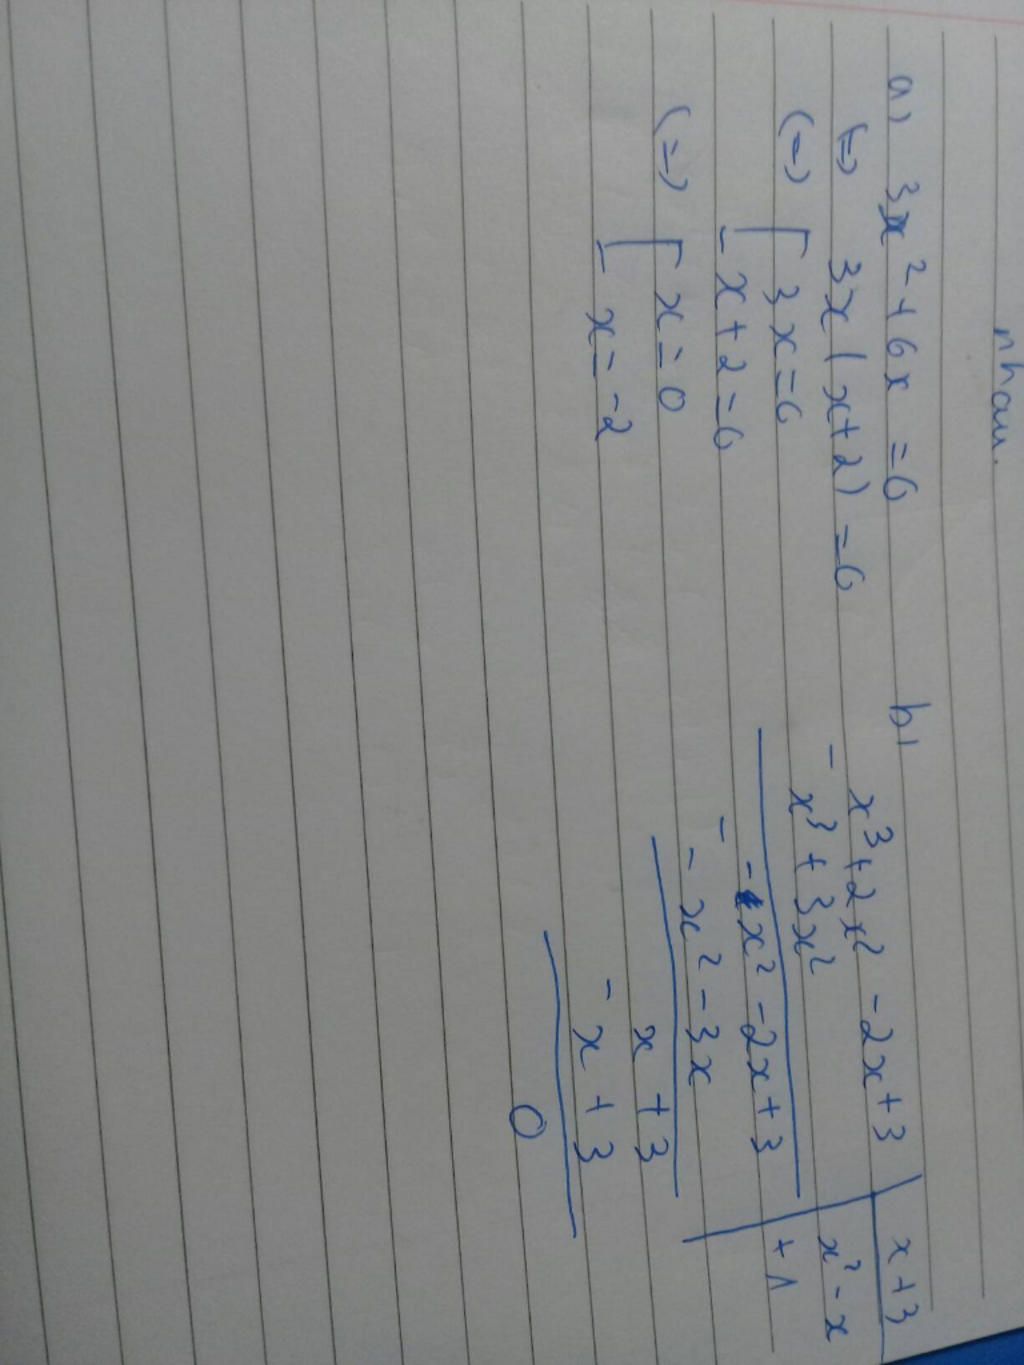 nhau.
a) 3x² + 6x = 0
(=) 3x (x+2) = 0
(=) [ 3x = 0
[ x + 2 = 0
(=) [ x = 0
[ x = -2
b) x³ + 2x² - 2x + 3 | x + 3
- x³ + 3x² | x² - x
- x² - 2x + 3 | + 1
- - x² - 3x
x + 3
- x + 3
0